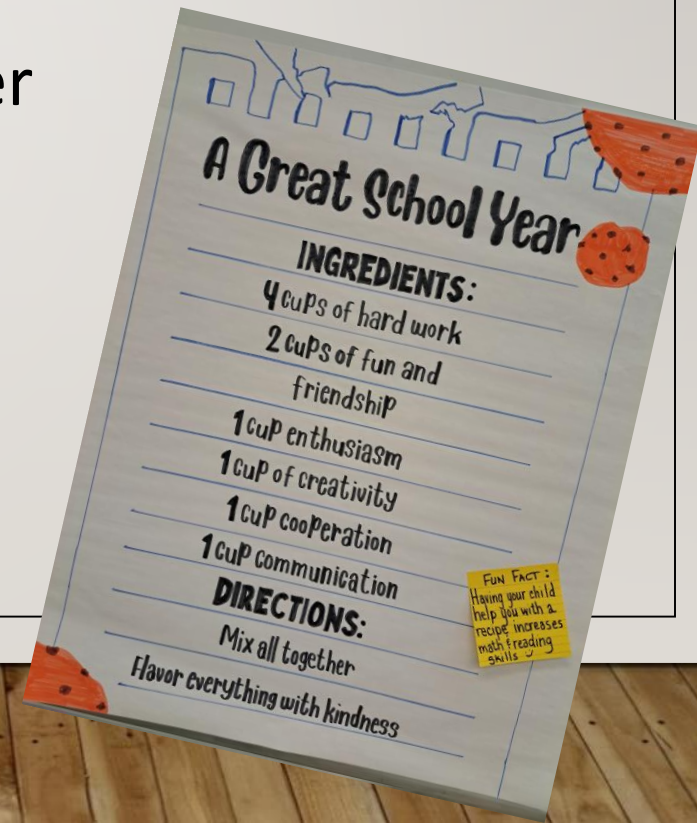 er
A Great School Year
INGREDIENTS:
4 cups of hard work
2 cups of fun and
friendship
1 cup enthusiasm
1 cup of creativity
1 cup cooperation
1 cup communication
DIRECTIONS:
Mix all together
Flavor everything with kindness
FUN FACT:
Having your child
help you with a
recipe, increases
math & reading
skills